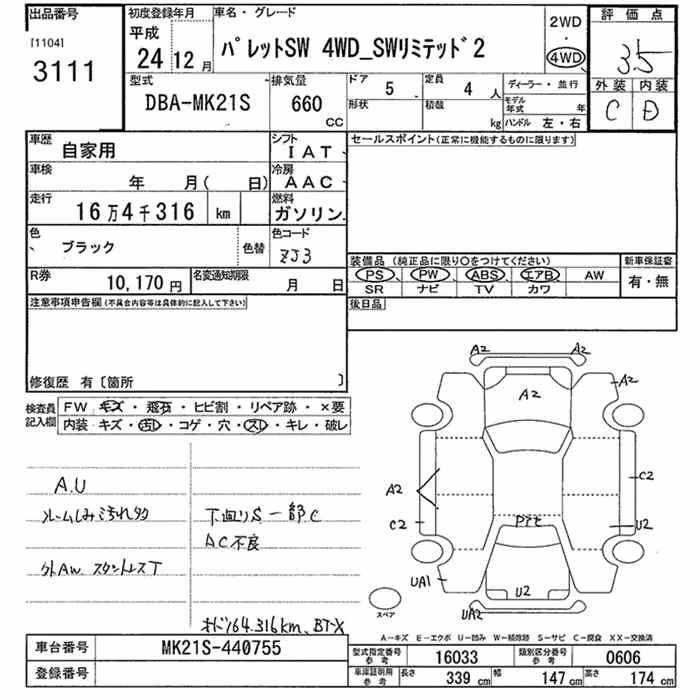 出品番号 初度登録年月 車名・グレード 2WD 評価点
[1104] 平成
3111 24年 12月 パレットSW 4WD_SWリミテッド2 ・ 4WD 3.5
型式 排気量 ドア 5 定員 4人 ディーラー・並行 外装 内装
DBA-MK21S 660 CC 形状 積載 kg モデル年式 年 C D
ハンドル 左・右
車歴 自家用 シフト IAT セールスポイント(正常に機能するものに限ります)
車検 年 月( 日) 冷房 AAC
走行 16万4千316 km 燃料 ガソリン
色 ブラック 色替 色コード ZJ3
装備品(純正品に限り○をつけてください) 新車保証書
R券 10,170円 名変通知期限 月 日 PS PW ABS エアB AW 有・無
SR ナビ TV カワ
注意事項申告欄(不具合内容等は具体的に記入して下さい) 後日品
修復歴 有〔箇所 〕
検査員記入欄 FW キズ・飛石・ヒビ割・リペア跡・×要
内装 キズ・汚レ・コゲ・穴・スレ・キレ・破レ
A2 A2
A2 A2
A.U
A2 C2
ルームしみ汚れ多 下回りS 一部C
C2 Prt U2
AC不良
外AW スタッドレスT
UA1 U2
UA2
スペア
オド164.316km、BT-X
A-キズ E-エクボ U-凹み W-補修跡 S-サビ C-腐食 XX-交換済
車台番号 MK21S-440755 型式指定番号 参考 16033 類別区分番号 参考 0606
登録番号 車庫証明用 参考 長さ 339cm 幅 147cm 高さ 174cm